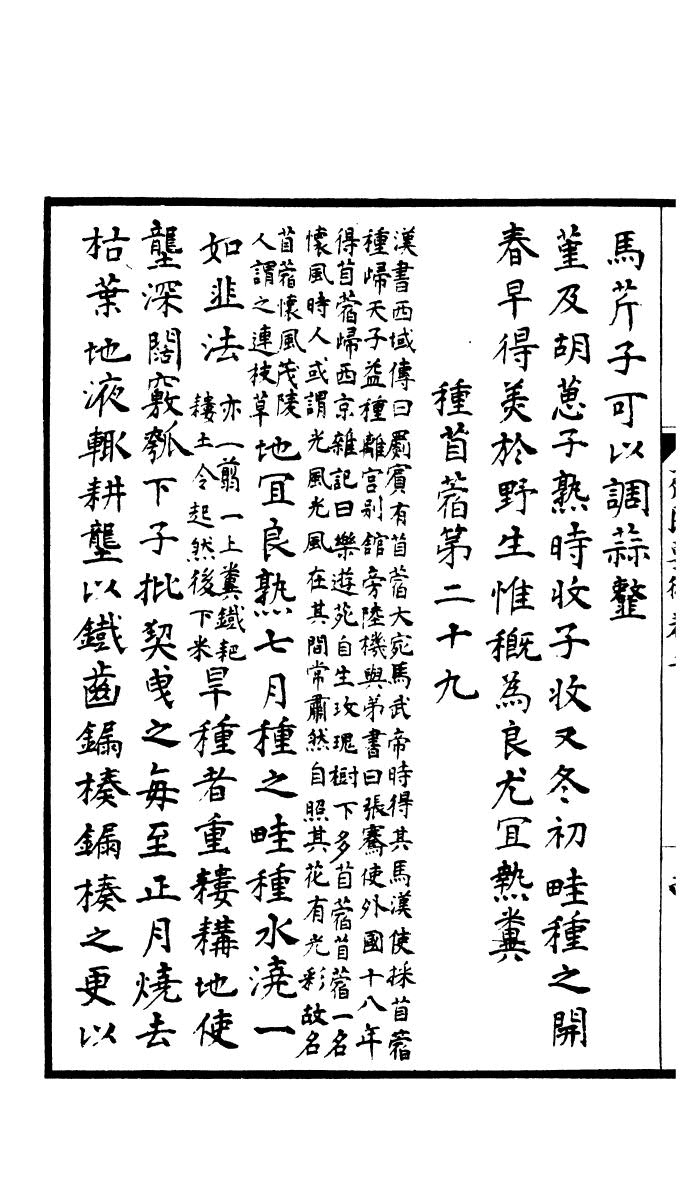 馬芹子可以調蒜韲
菫及胡葸子熟時收子收又冬初畦種之開
春早得美於野生惟穊為良尤宜熱糞
種苜蓿第二十九
漢書西域傳曰罽賓有苜蓿大宛馬武帝時得其馬漢使採苜蓿
種歸天子益種離宮别館旁陸機與弟書曰張騫使外國十八年
得苜蓿歸西京雜記曰樂遊苑自生玫瑰樹下多苜蓿苜蓿一名
懷風時人或謂光風光風在其間常肅然自照其花有光彩故名
苜蓿懷風茂陵
人謂之連枝草
地宜良熟七月種之畦種水澆一
如韭法
亦一翦一上糞鐵耙
耬土令起然後下米
旱種者重耬耩地使
壟深闊竅瓠下子批契曳之每至正月燒去
枯葉地液輙耕壟以鐵齒𨫒楱𨫒楱之更以